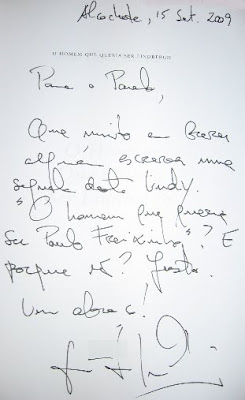 Alcochete, 15 Set. 2009
O HOMEM QUE QUERIA SER LINDBERGH
Para o Paulo,
Que muito em breve
alguém escreva uma
segunda deste Lindy.
"O homem que queria
Ser Paulo Freixinho"? E
porque não? Gosto.
Um abraço!